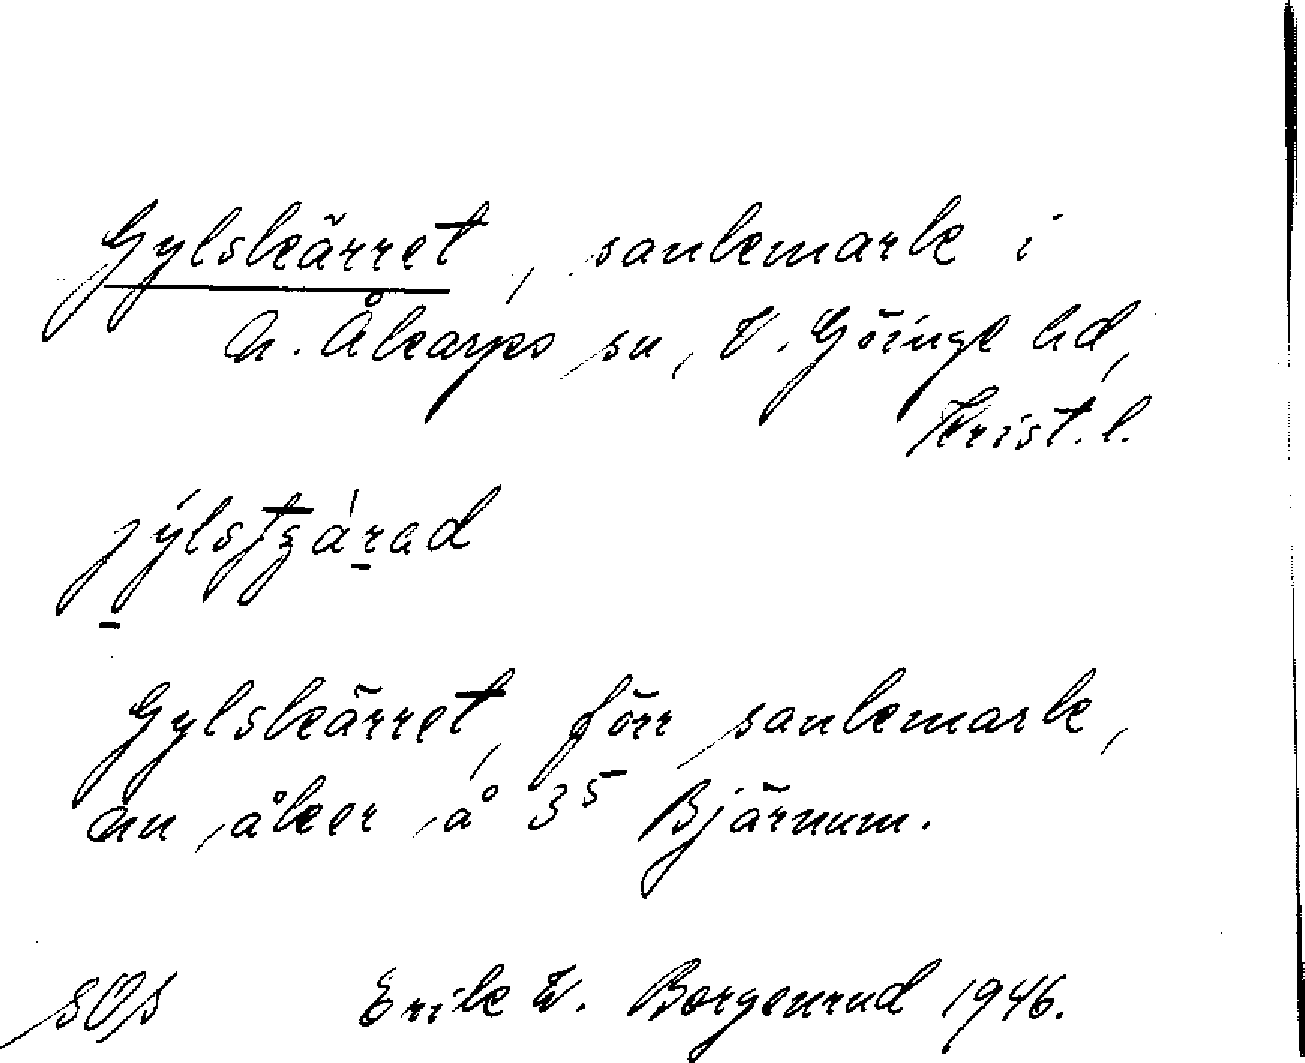 Gylskärret, sankmark i
N. Åkarps sn, V. Göinge hd,
Krist. l.
Gylskärret, förr sankmark,
nu åker å 3⁵ Bjärnum.
SOS Erik W. Borgenrud 1946.